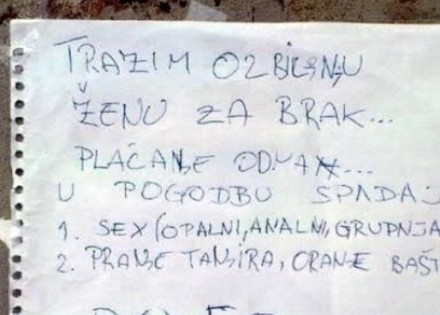 TRAZIM OZBILJNU
ŽENU ZA BRAK...
PLAĆANJE ODMAH...
U POGODBU SPADAJ
1. SEX (OPALNI, ANALNI, GRUPNJA
2. PRANJE TANJIRA, ORANJE BAŠT